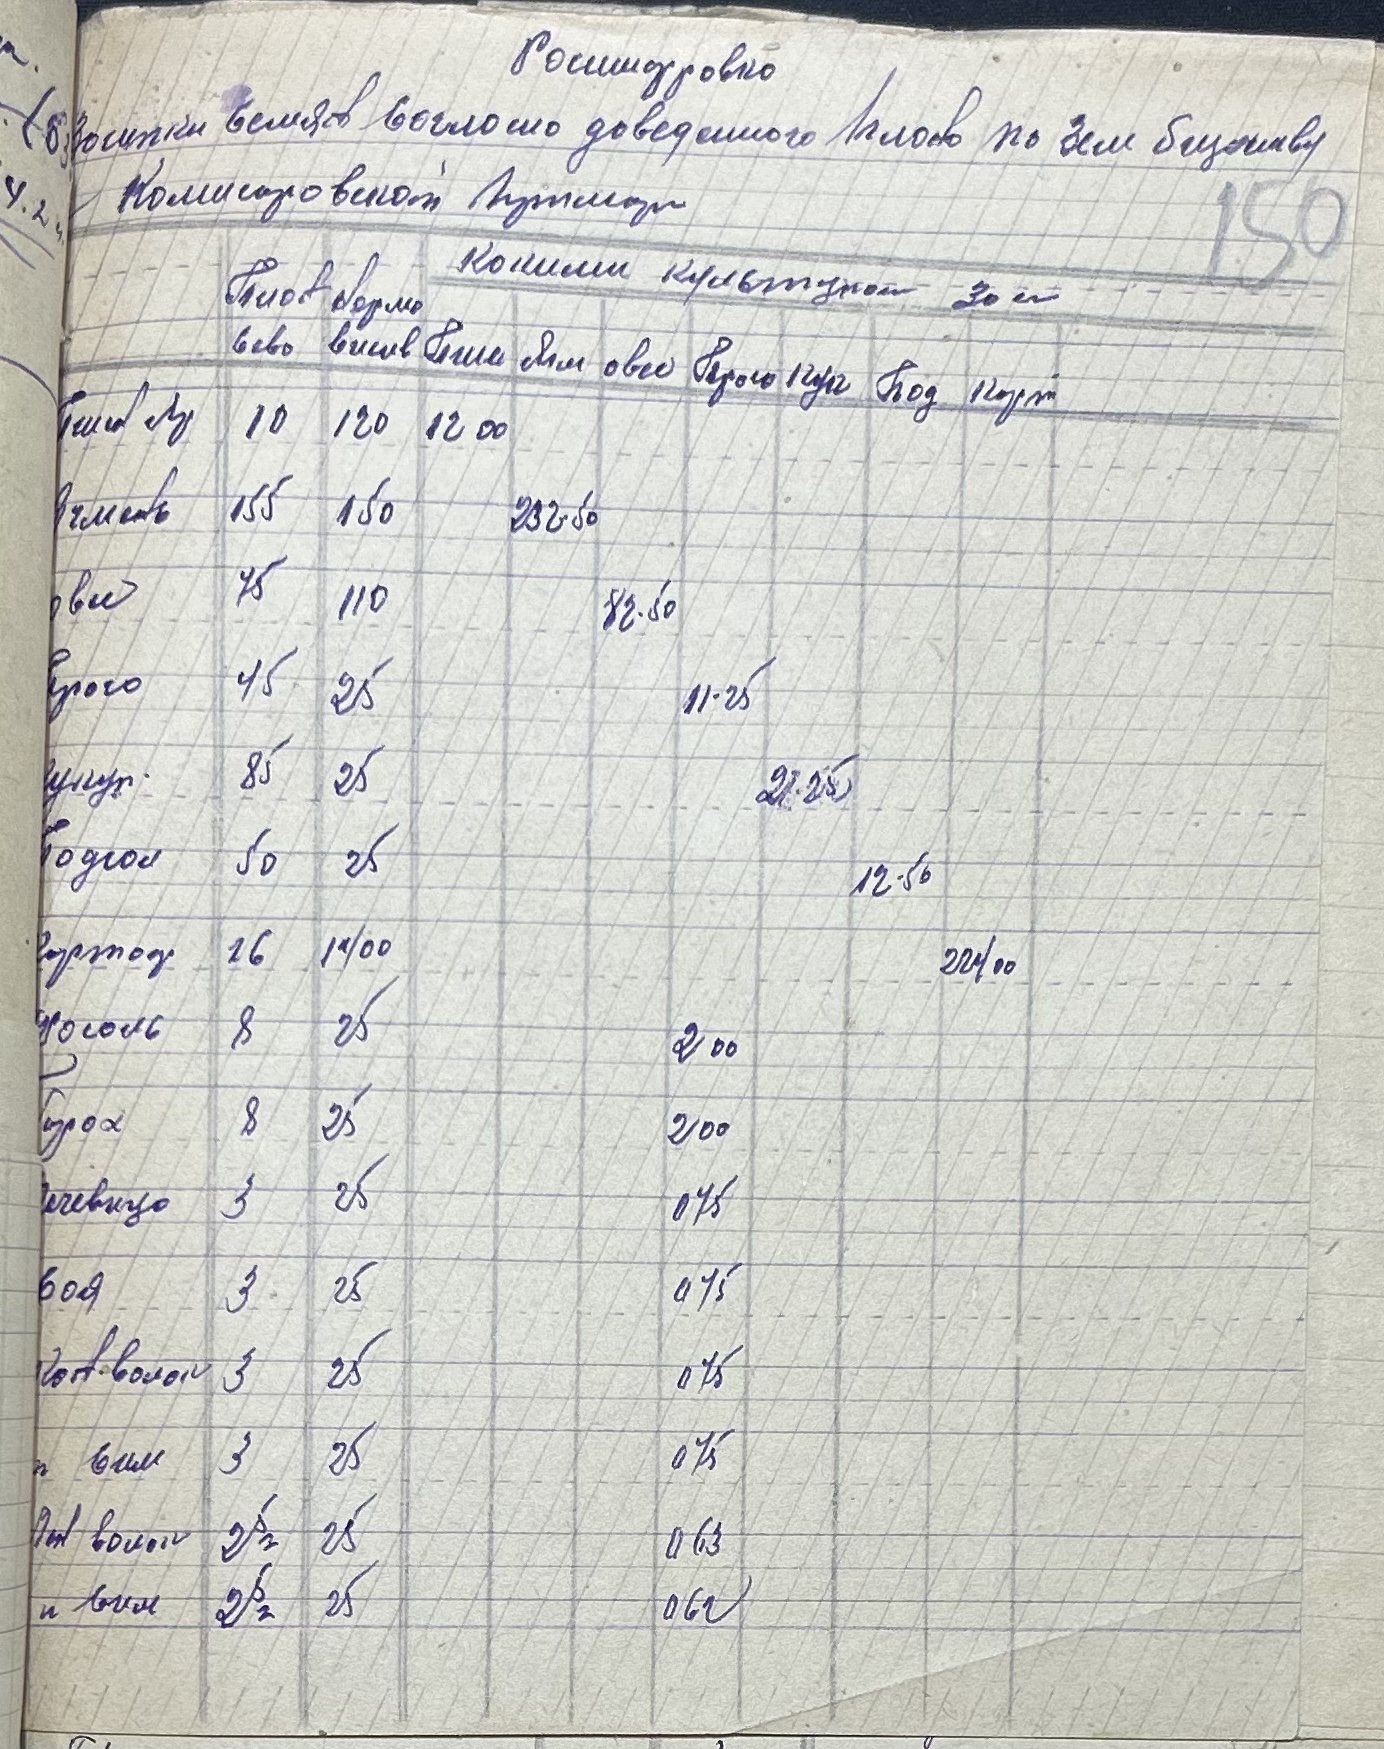 Росшифровка
Засипки Семян Согласно доведенного плана по Зем бищоству
Комисаровской
150
План Норма Какими культурами За
Сево висев Пше Ячм овес Просо Кук Под Карт
Пшен Яр 10 120 12 00
Ячмень 155 150 232-50
овес 75 110 82-50
Просо 45 25 11-25
Кукур. 85 25 21-25
Подсол 50 25 12-50
Картоф 16 14/00 224/00
Фасоль 8 25 2 00
Горох 8 25 2 00
Чечевица 3 25 0 75
Соя 3 25 0 75
Кон. волок 3 25 0 75
" сим 3 25 0 75
Лен волок 2,5 25 0 63
" сим 2,5 25 0 62